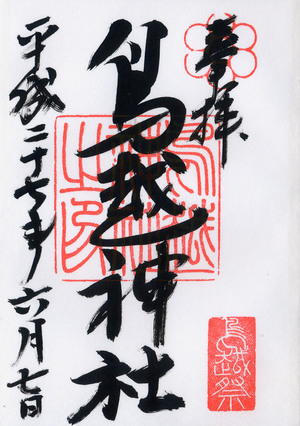 奉拝
鳥越神社
鳥越神社之印
平成二十七年六月七日
鳥越祭